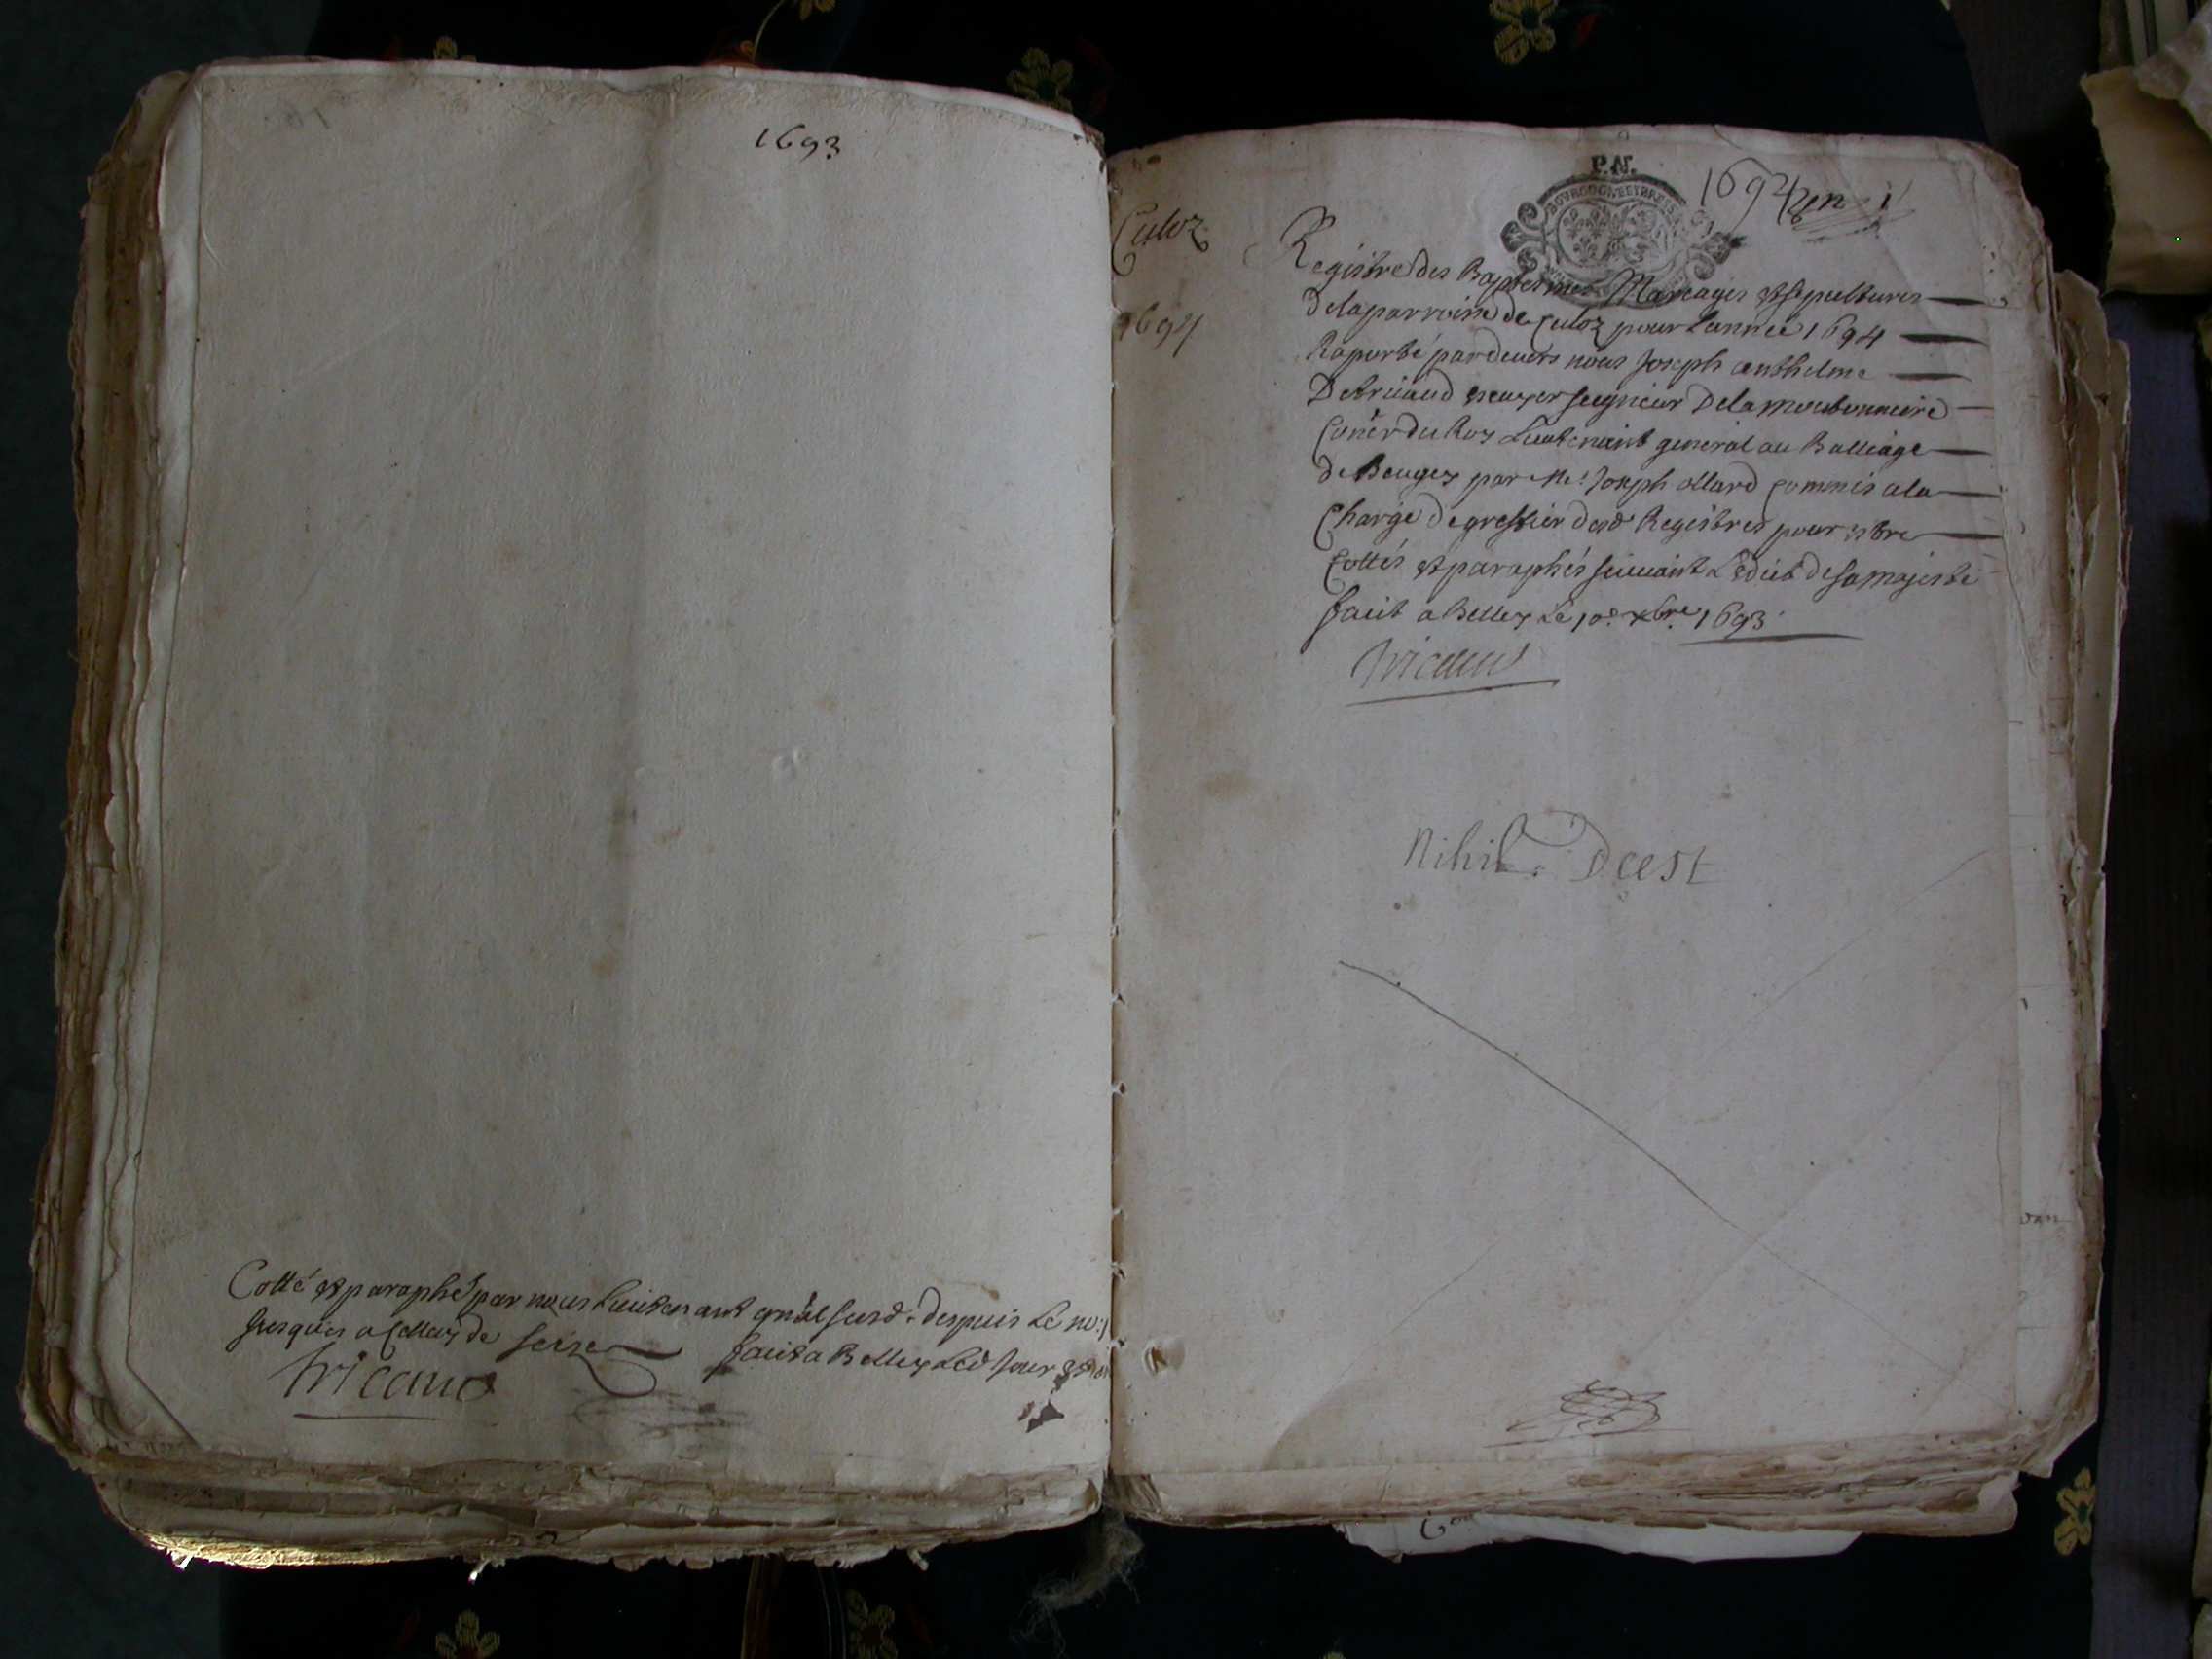 1693
Cotté et paraphé par nous Lieutenant gnãl susd. despuis Le no: 1
Jusques a celluy de seize faict a Belley Led Jour et
Tricaud
Culoz
1694
P.N.
BOVRGOGNE ET BRESSE
1694 un
Registre des Baptesmes Mareages et sepultures
De la parroisse de Culoz pour L'année 1694
Raporté pardeuers nous Joseph anthelme
Detricaud escuyer seigneur Delamoutonniere
Coner du Roy Lieutenant general au Balliage
de Beugey par Me. Joseph ollard commis a la
Charge de greffier desd Registres pour estre
Cottés et paraphés suiuant L'edict de sa majesté
faict a Belley Le 10e xbre 1693
Tricaud
Nihil Deest